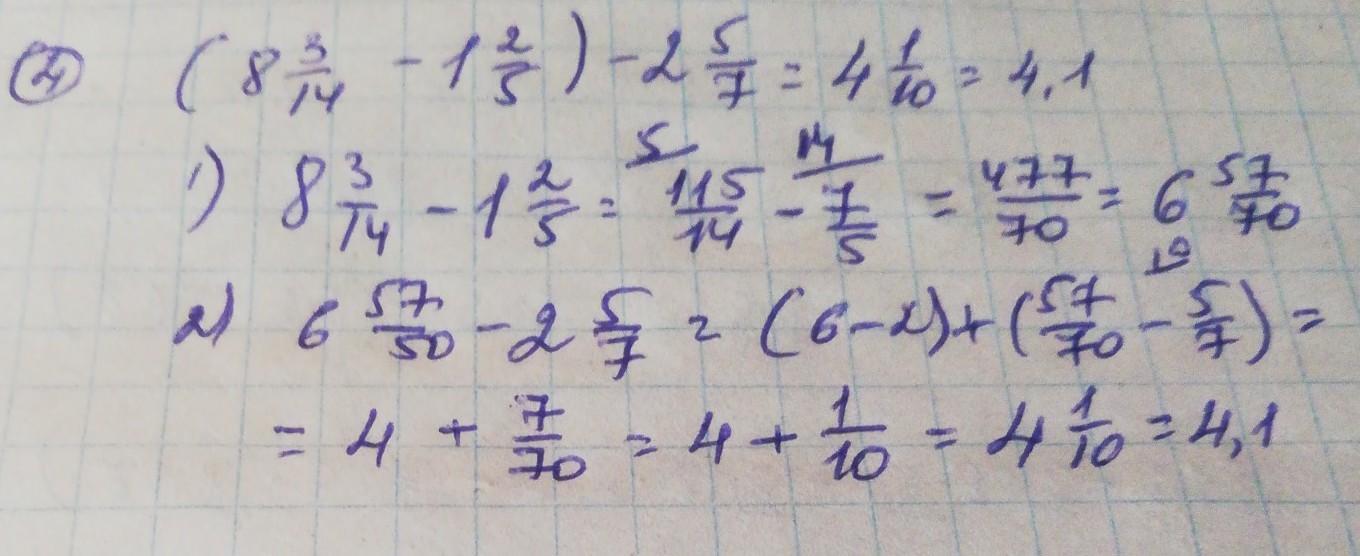 ④ (8 3/14 - 1 2/5) - 2 5/7 = 4 1/10 = 4,1
1) 8 3/14 - 1 2/5 = 5/ 115/14 - 14/ 7/5 = 477/70 = 6 57/70
2) 6 57/50 - 2 5/7 = (6 - 2) + (57/70 - 10/ 5/7) =
= 4 + 7/70 = 4 + 1/10 = 4 1/10 = 4,1